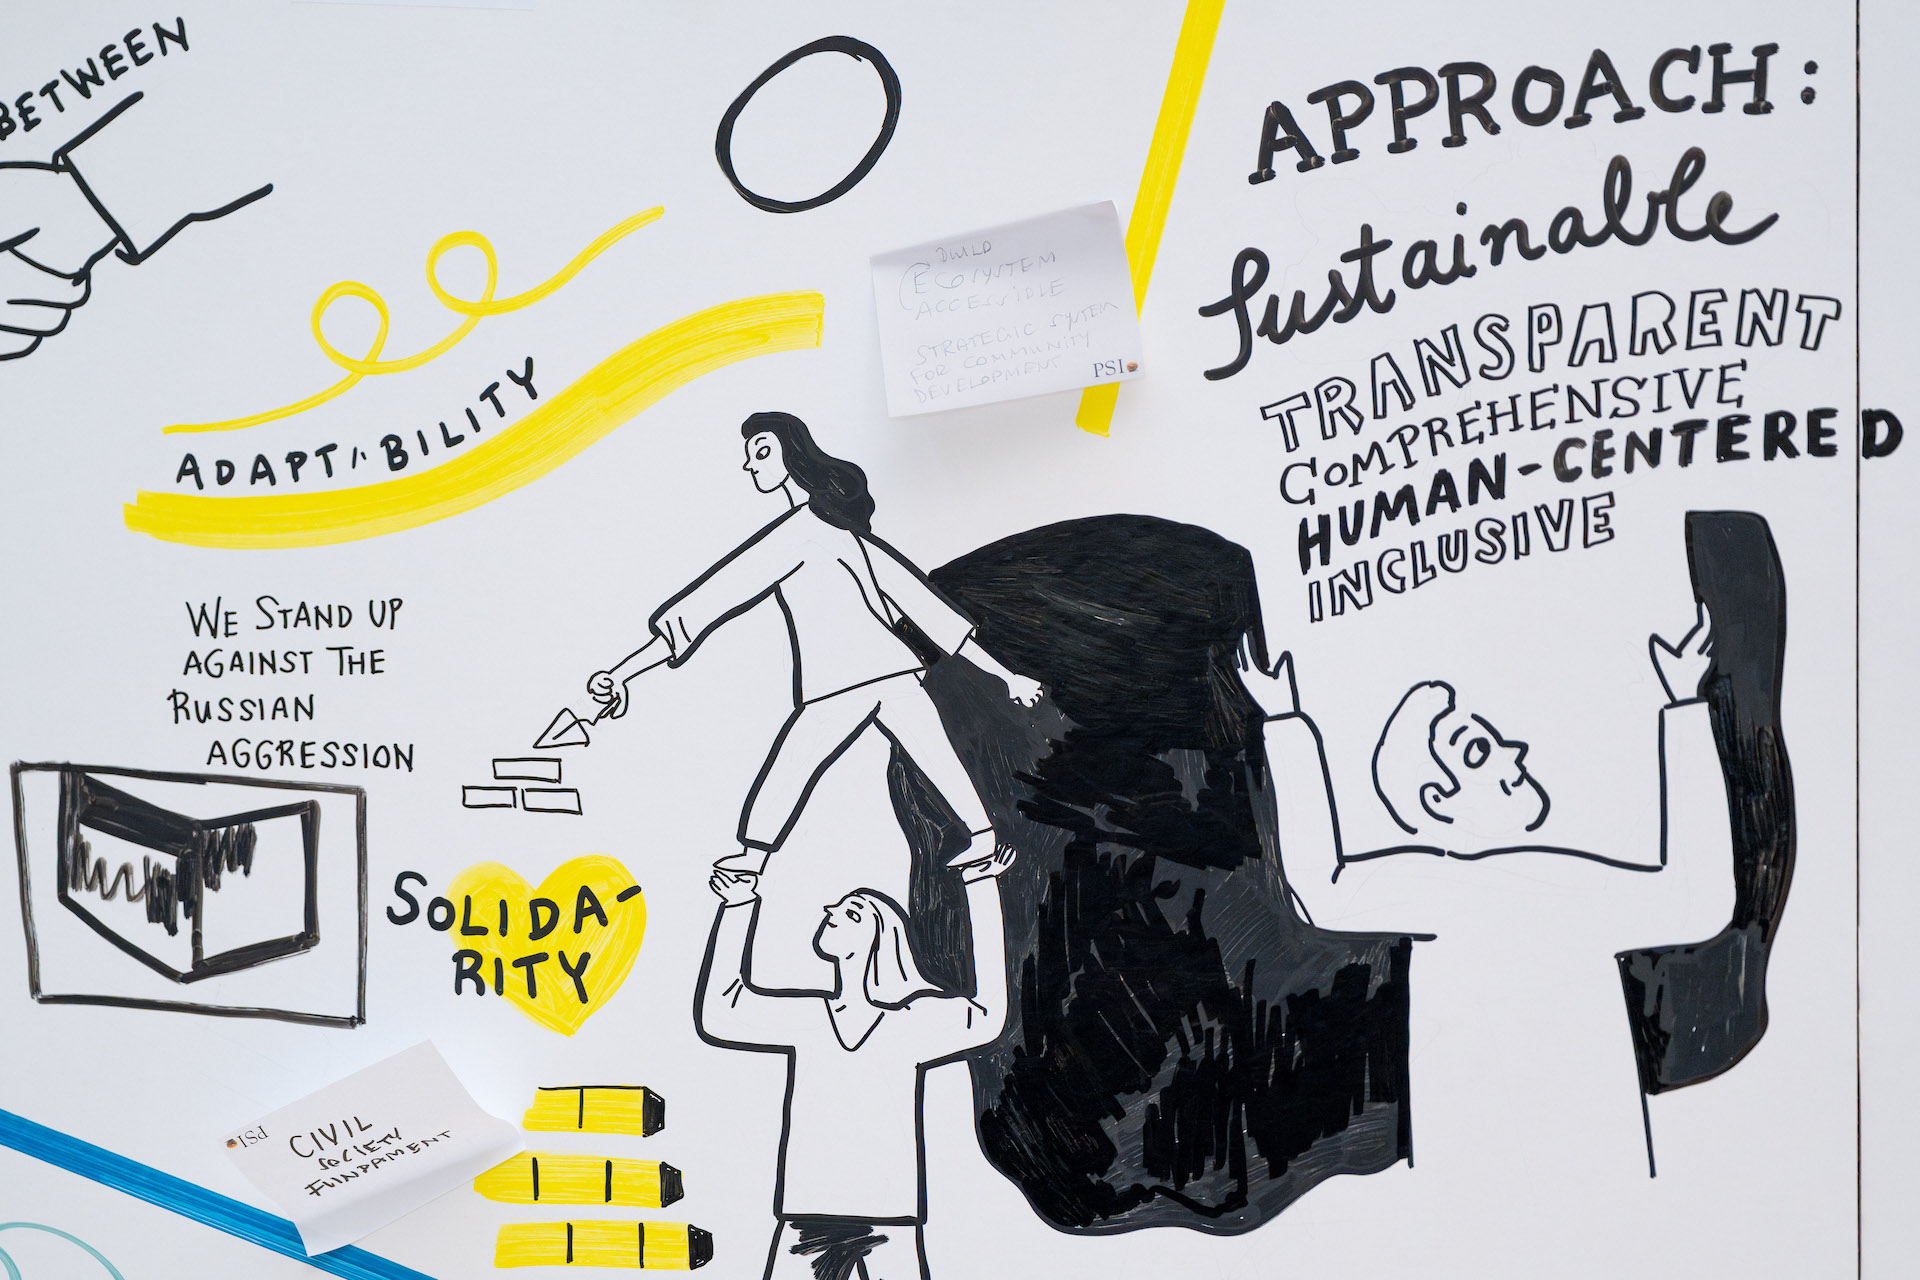 BETWEEN
ADAPTABILITY
WE STAND UP
AGAINST THE
RUSSIAN
AGGRESSION
SOLIDA-
RITY
CIVIL
SOCIETY
FUNDAMENT
PSI
BUILD
ECOSYSTEM
ACCESSIBLE
STRATEGIC SYSTEM
FOR COMMUNITY
DEVELOPMENT
PSI
APPROACH:
Sustainable
TRANSPARENT
COMPREHENSIVE
HUMAN-CENTERED
INCLUSIVE